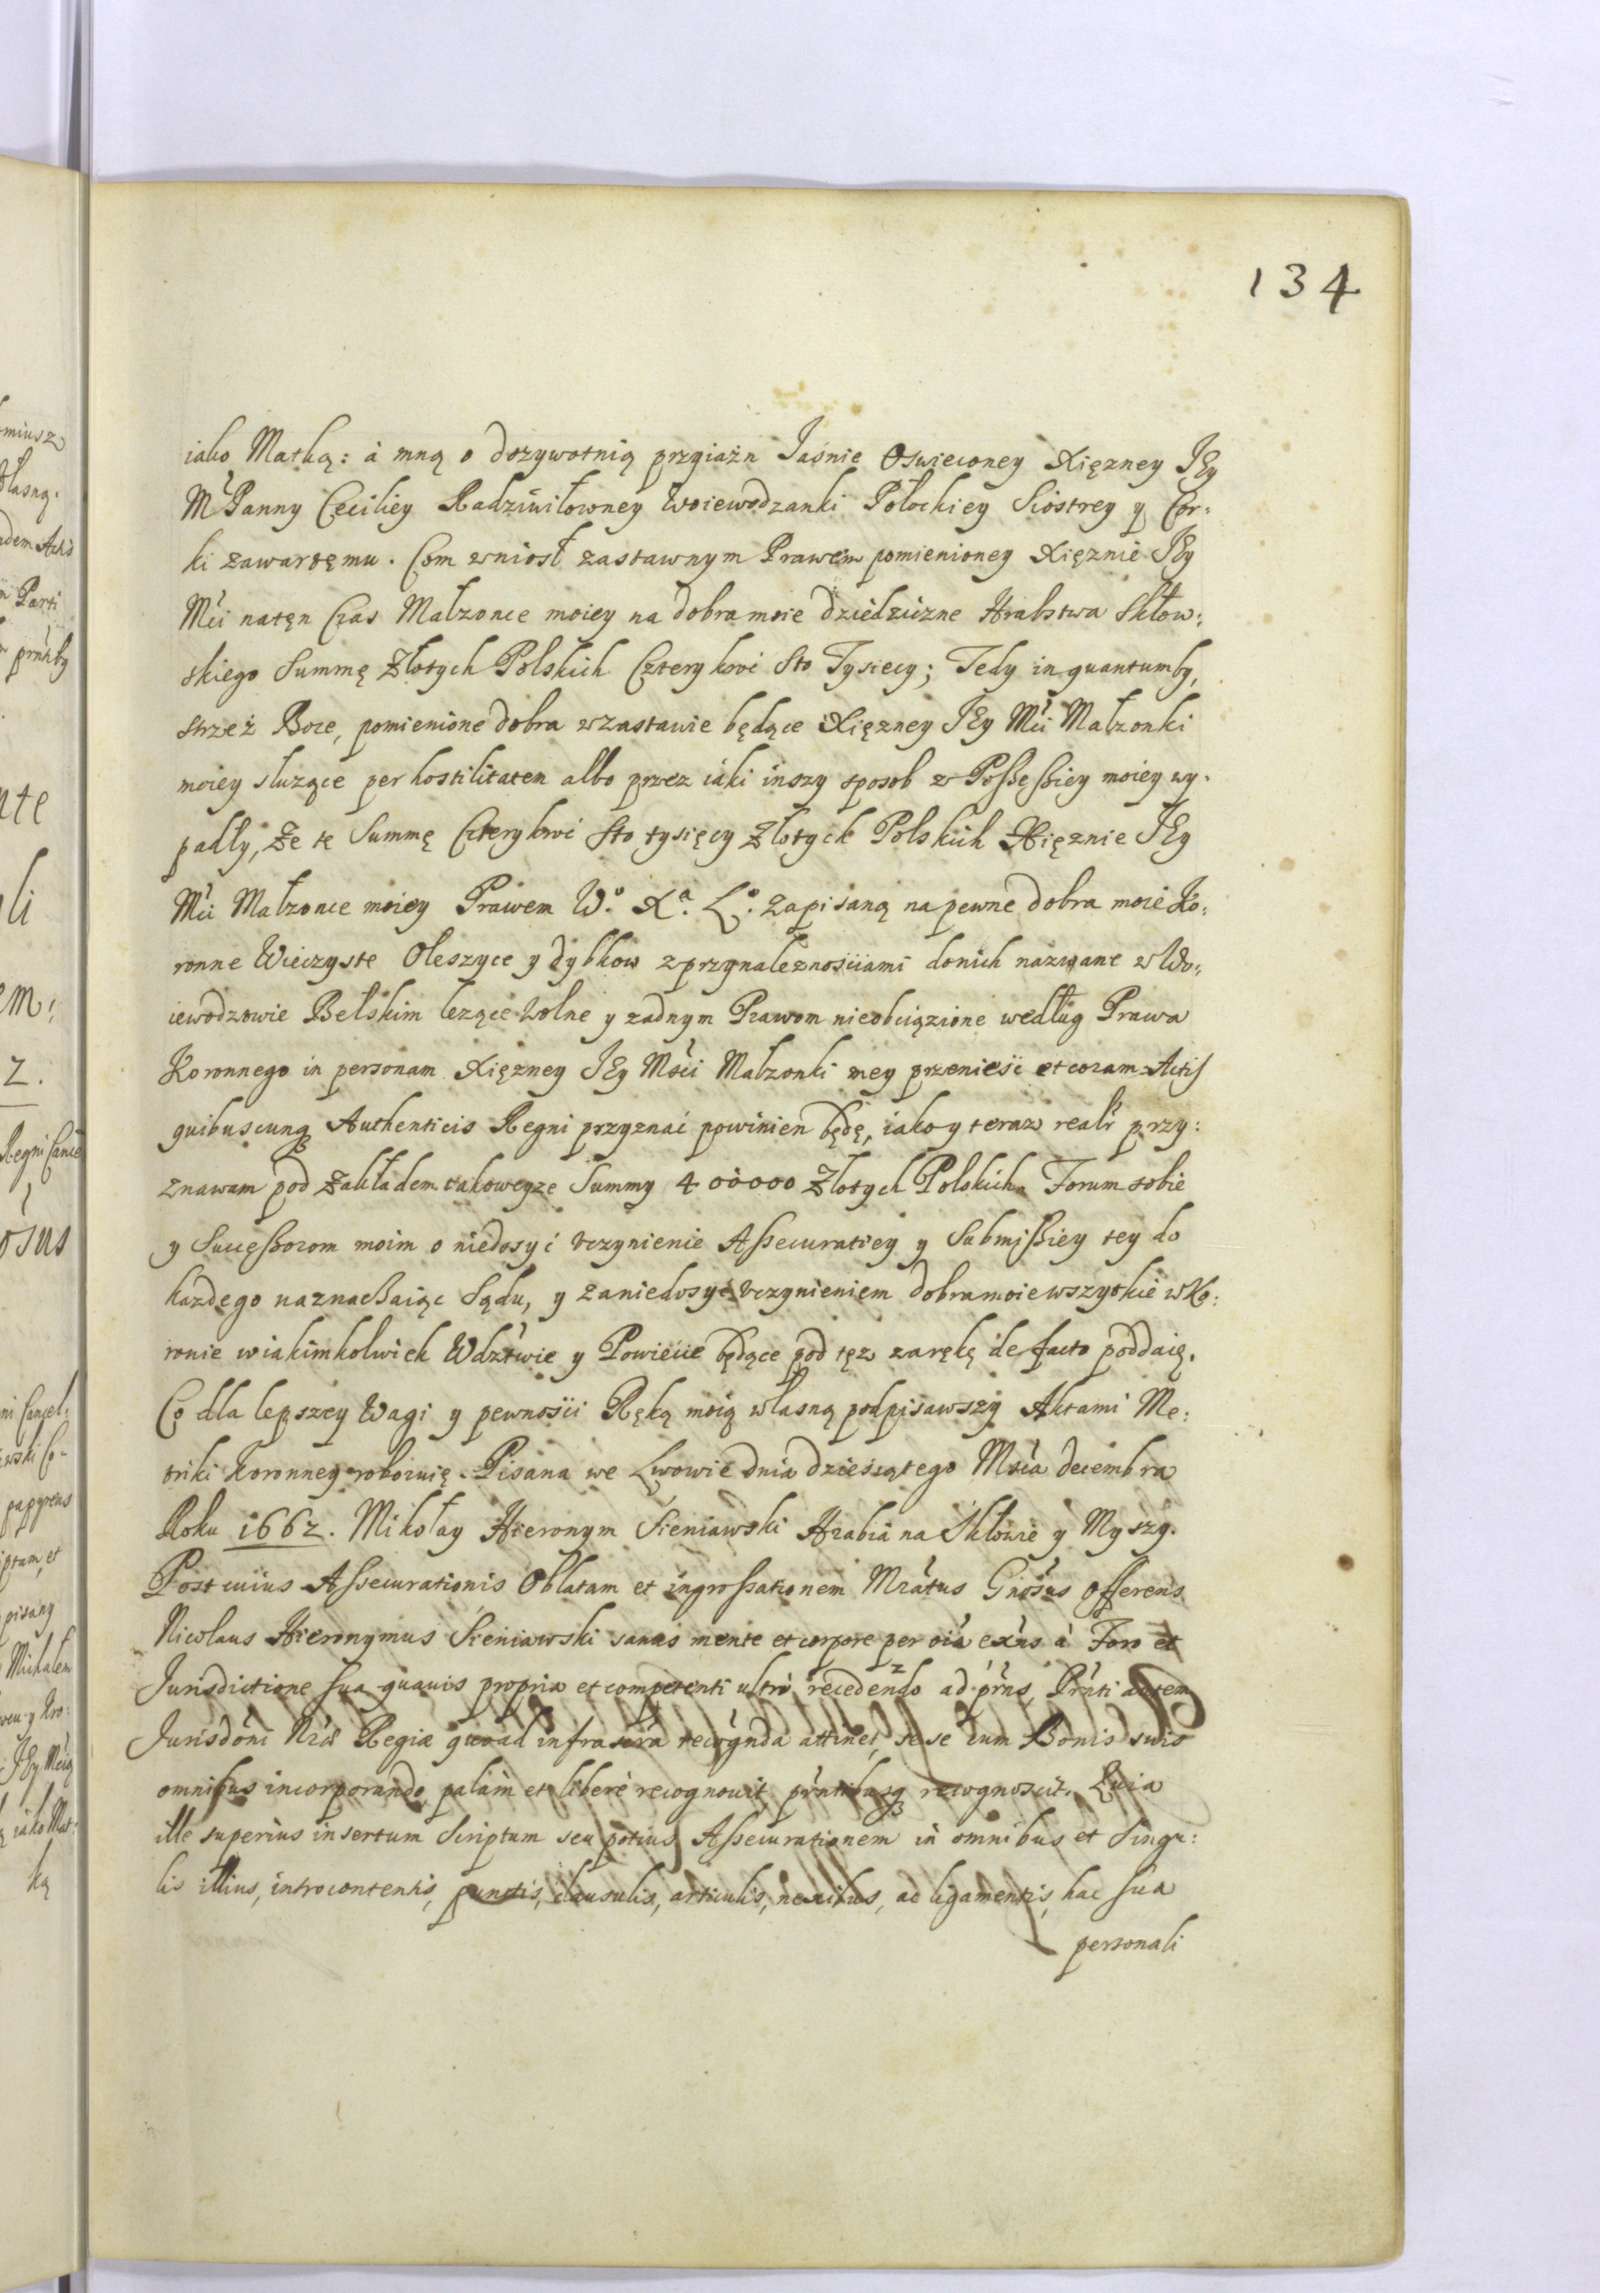 134
iako Matką: à mną o dozywotnią przyiaźn Jaśnie Oswieconey Xięzney JEy
Mć Panny Ceciliey Radziwiłowney Woiewodzanki Połockiey Siostrey y Cor:
ki zawartęmu. Com wniosł zastawnym Prawem pomienioney Xięznie JEy
Mći natęn Czas Małzonce moiey na dobra moie dziedziczne Hrabstwa Skłow:
skiego Summę Złotych Polskich Czterykroć Sto Tysiecy; Tedy in quantumby,
strzeż Boze, pomienione dobra w zastawie będące Xięzney JEy Mći Małzonki
moiey sluzące per hostilitatem albo przez iaki inszy sposob z Posseßiey moiey wy:
padły, Ze te Summę Czterykroć Sto tysięcy Złotych Polskich Xięznie JEy
Mći Małzonce moiey Prawem W.° X.ª L.° zapisaną na pewne dobra moie Ko:
ronne Wieczyste Oleszyce y dybkow z przynaleznosciami donich nazwane w Wo:
iewodztwie Bełskim lezące wolne y zadnym Prawom nieobciązione według Prawa
Koronnego in personam Xięzney JEy Mści Małzonki mey przenieść et coram Actis
quibuscunq Authenticis Regni przyznać powinien będę, iako y teraz realr przy:
znawam pod Zakładem takoweyze Summy 400000 Złotych Polskich. Forum sobie
y Sucęßorom moim o niedosyć vczynienie Assecuratiey y Submißiey tey do
kazdego naznaczaiąc Sądu, y zaniedosyć vczynieniem dobra moie wszytkie w Ko:
ronie w iakimkolwiek Wdztwie y Powiecie będące pod tęz zarękę de facto poddaię.
Co dla lepszey Wagi y pewności Ręką moią własną podpisawszy Aktami Me:
triki Koronney roboruię. Pisana we Lwowie dnia dziesiątego Msca decembra
Roku 1662. Mikołay Hieronym Sieniawski Hrabia na Skłowie y Myszy.
Post cuius Assecurationis Oblatam et ingrossationem Mratus Gnosus Offerens
Nicolaus Hieronymus Sieniawski sanus mente et corpore per oia exns à Foro et
Jurisdictione sua quauis propria et competenti ultrò recedendo ad prns, Prnti autem
Jurisdoni Nrae Regiae quoad infrascra recognda attinet, sese cum Bonis suis
omnibus incorporando, palàm et liberè recognouit, prntibusq recognoscit. Quia
ille superius insertum Scriptum seu potius Assecurationem in omnibus et Singu:
lis illius, introcontentis, punctis, clausulis, articulis, nexibus, ac ligamentis, hac sua
personali